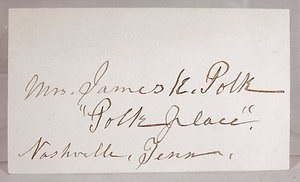 Mrs. James K. Polk
"Polk Place".
Nashville, Tenn.